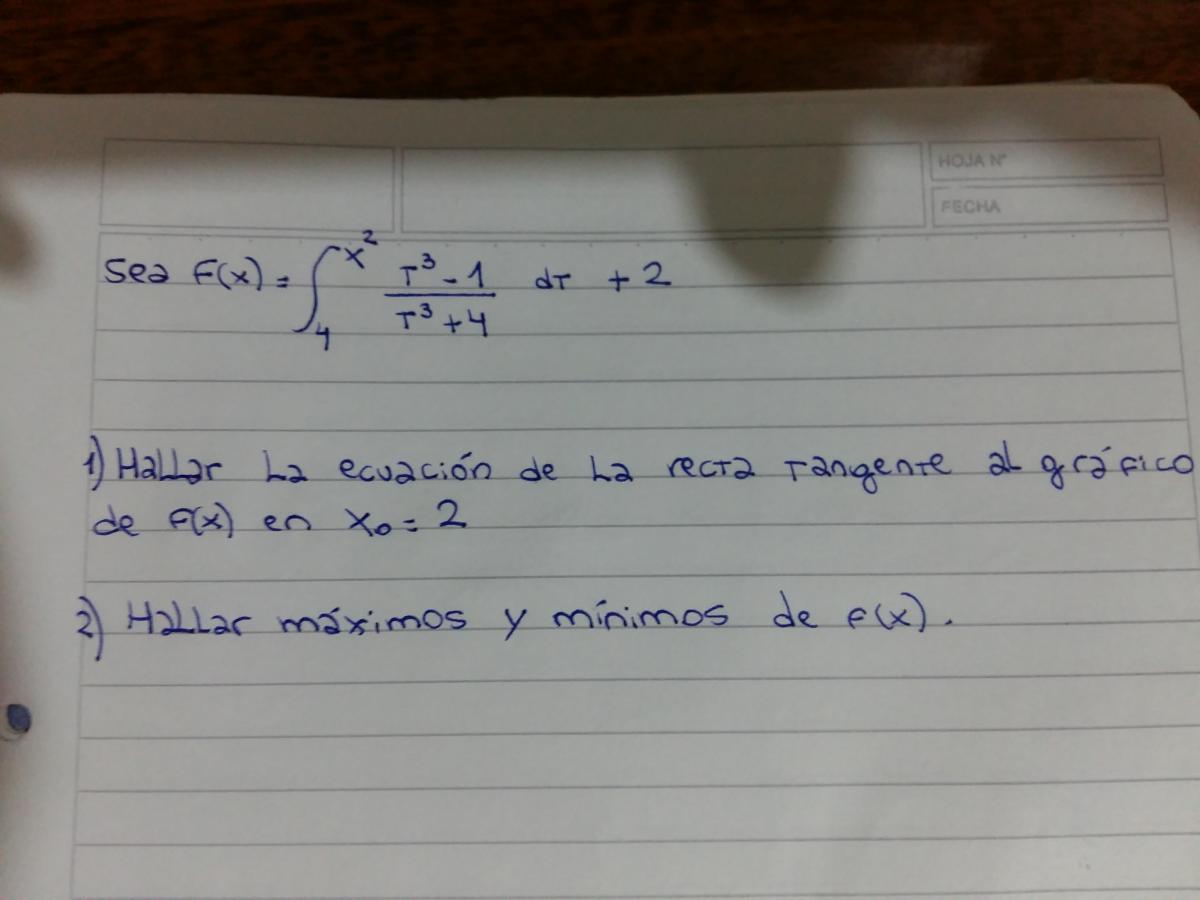 HOJA N°
FECHA
Sea F(x) = ∫₄^x² (T³ - 1)/(T³ + 4) dT + 2
1) Hallar La ecuación de La recta tangente al gráfico
de F(x) en x₀ = 2
2) Hallar máximos y mínimos de F(x).